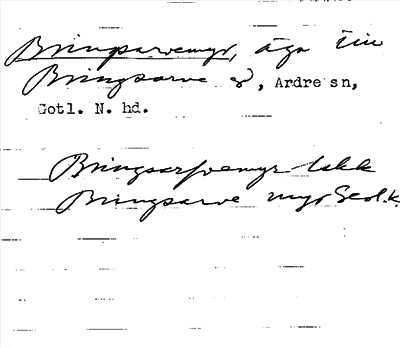 Bringsarvemyr, äga till
Bringsarve g, Ardre sn,
Gotl. N. hd.
Bringsarfvemyr Lskk
Bringsarve myr Geol.k.